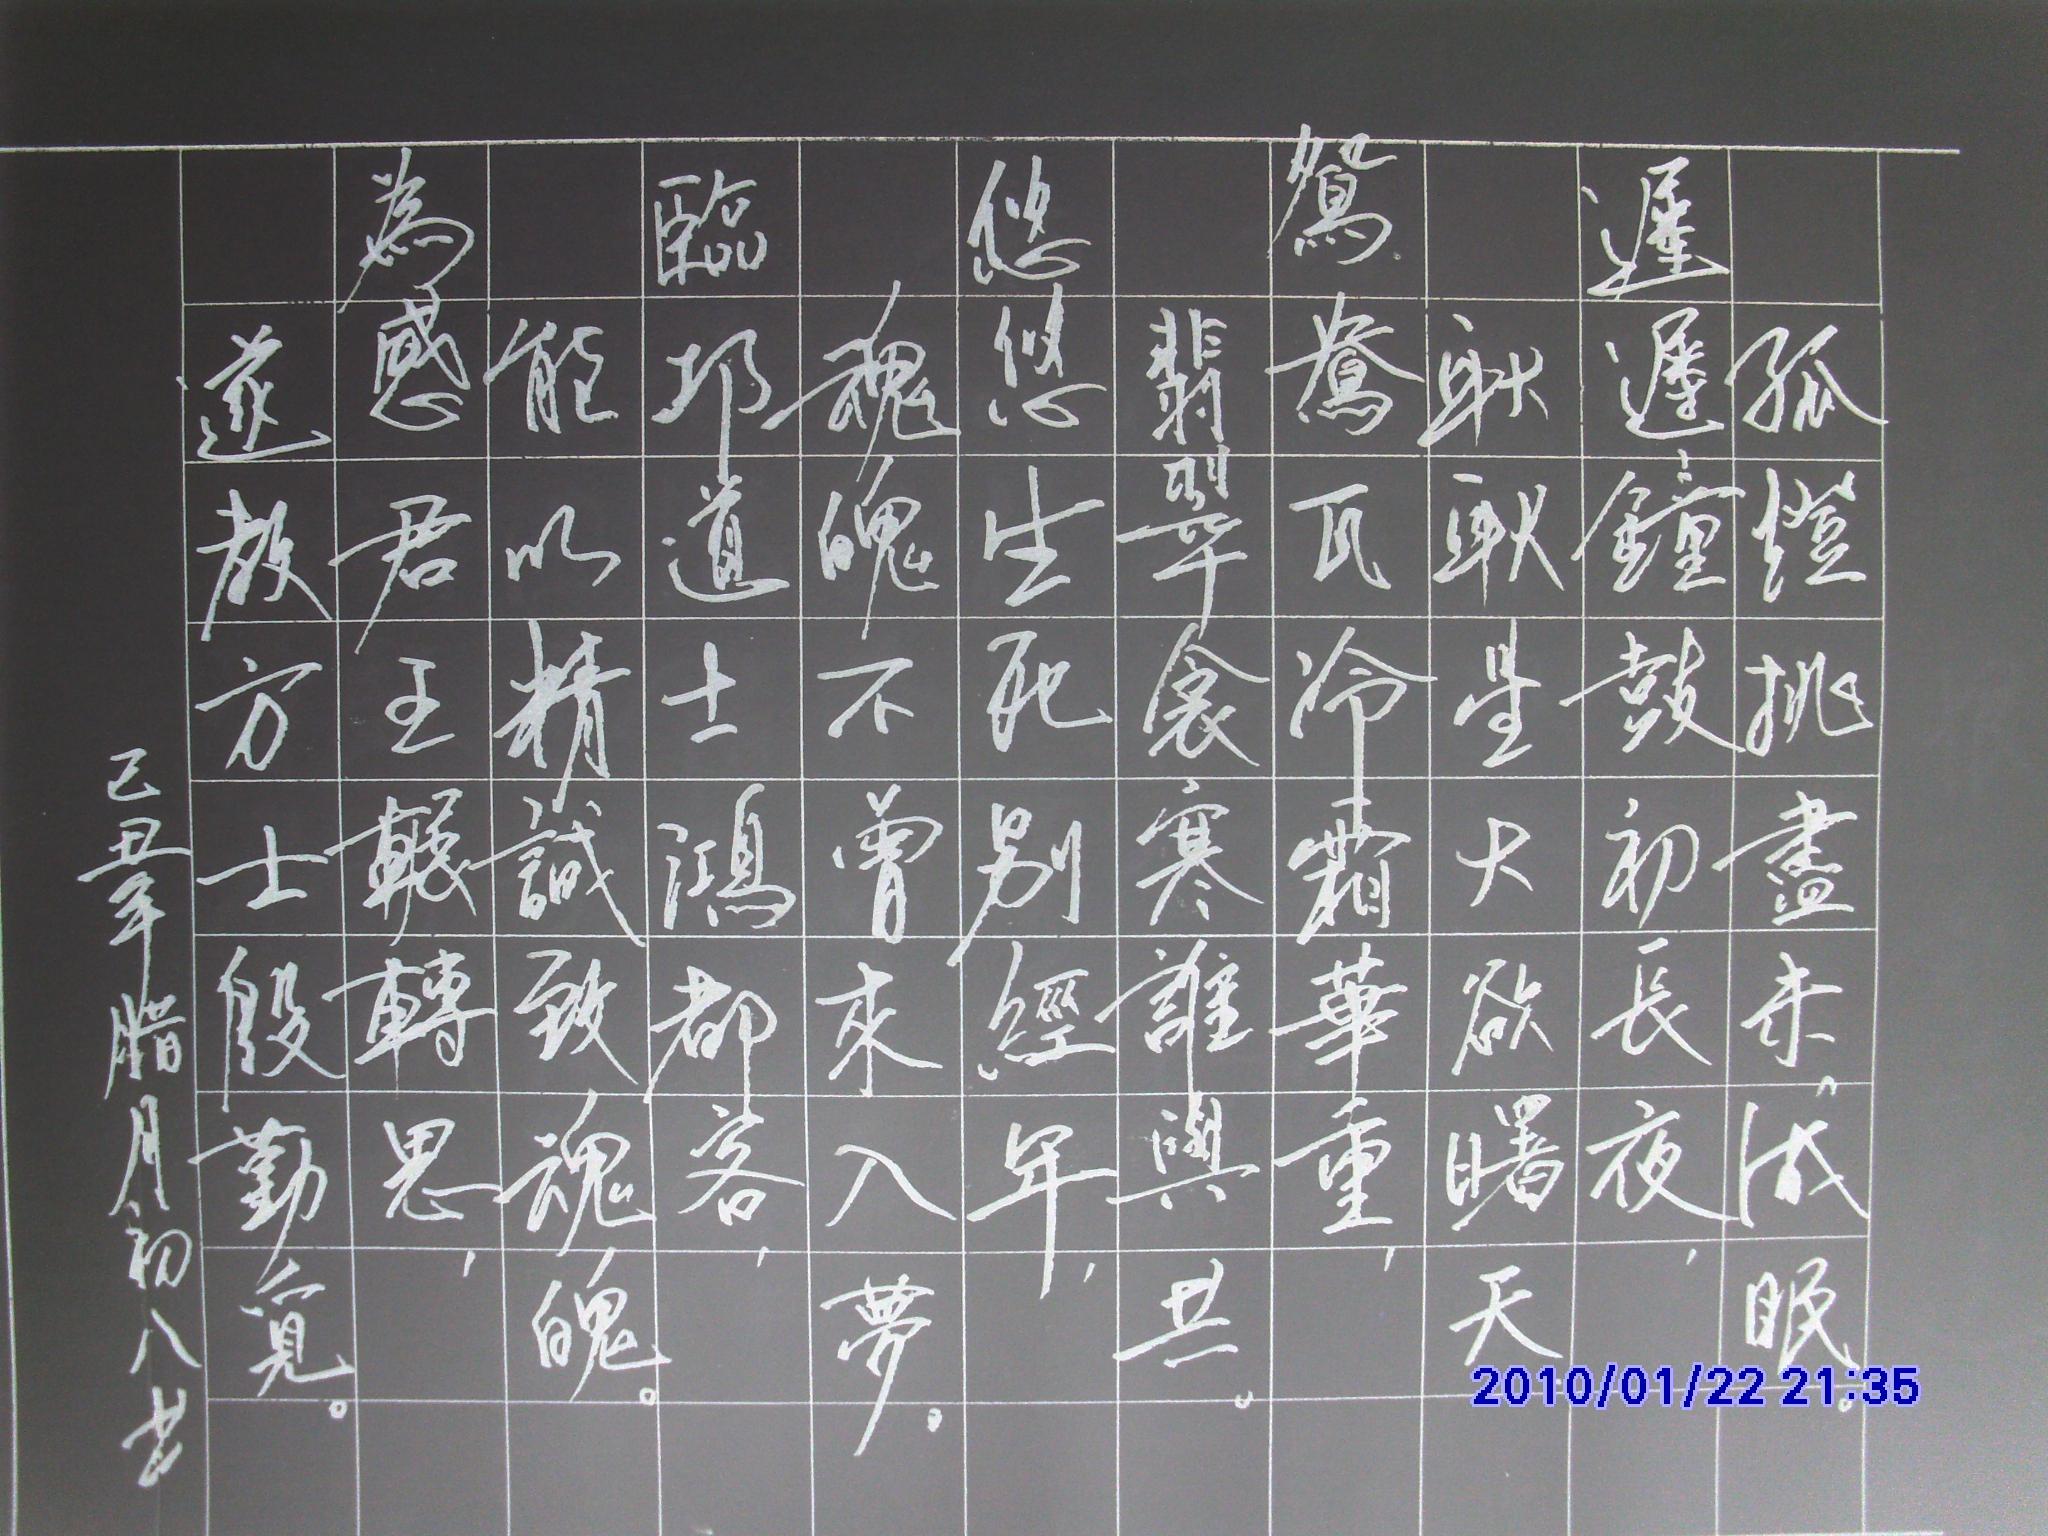 孤燈挑盡未成眠。
遲遲鐘鼓初長夜,
耿耿星大欲曙天
鴛鴦瓦冷霜華重,
翡翠衾寒誰與共。
悠悠生死別經年,
魂魄不曾來入夢。
臨邛道士鴻都客,
能以精誠致魂魄。
為感君王輾轉思,
遂教方士殷勤覓。
己丑年臘月初八書
2010/01/22 21:35